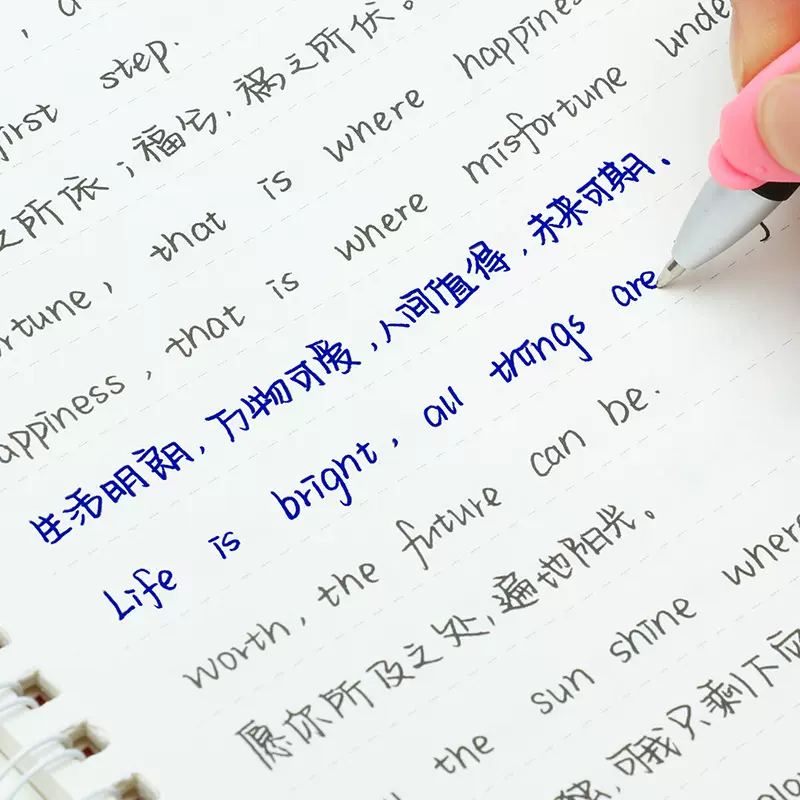 first step.
之所依；福兮，祸之所伏。
that is where happiness
that is where misfortune
生活明朗，万物可爱，人间值得，未来可期。
Life is bright, all things are
worth, the future can be.
愿你所及之处，遍地阳光。
the sun shine where
可我只剩下